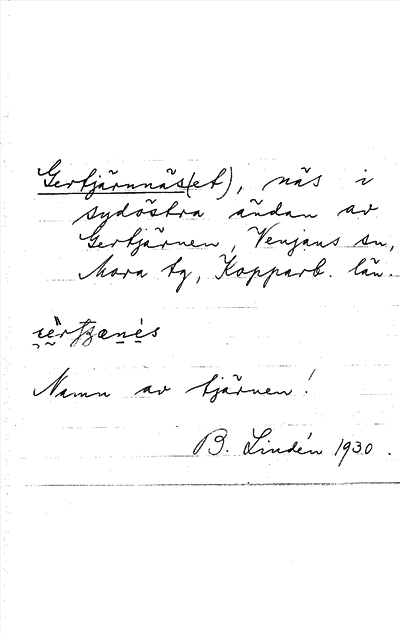 Gertjärnnäs(et), näs i
sydöstra ändan av
Gertjärnen, Venjans sn,
Mora tg, Kopparb. län.
Namn av tjärnen!
B. Lindén 1930.